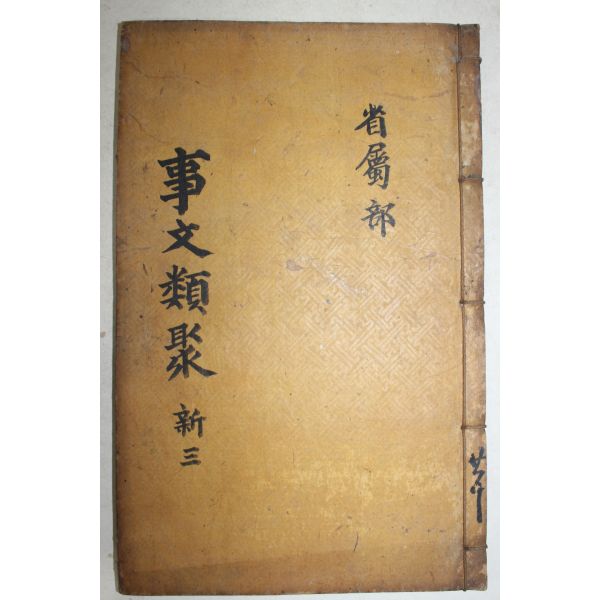 省屬部
事文類聚
新三